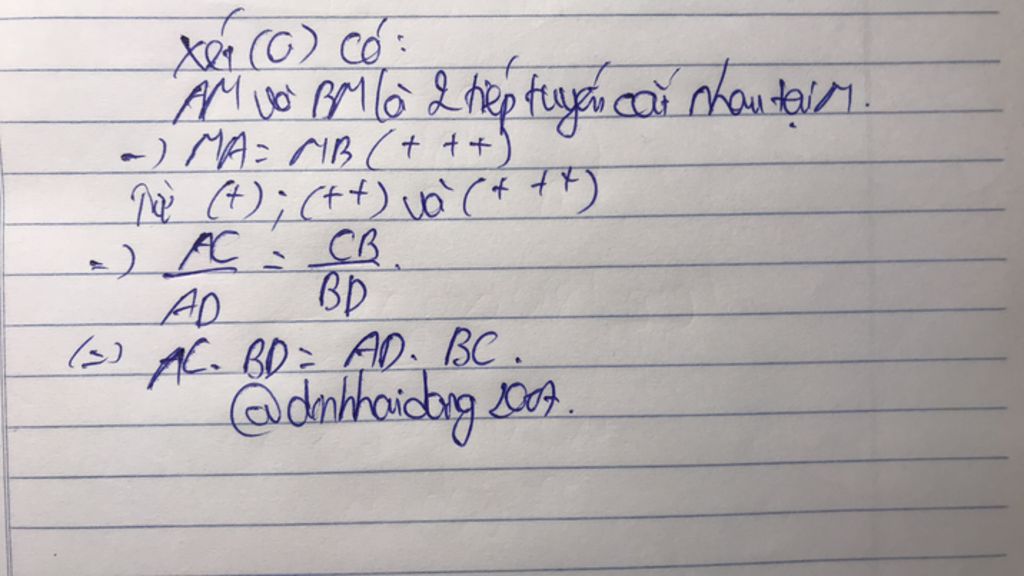 Xét (O) có:
AM và BM là 2 tiếp tuyến cắt nhau tại M.
=) MA = MB (+ ++)
Từ (+); (++) và (+ ++)
=) AC/AD = CB/BD.
(=) AC. BD = AD. BC.
@dmhhaidang 2007.